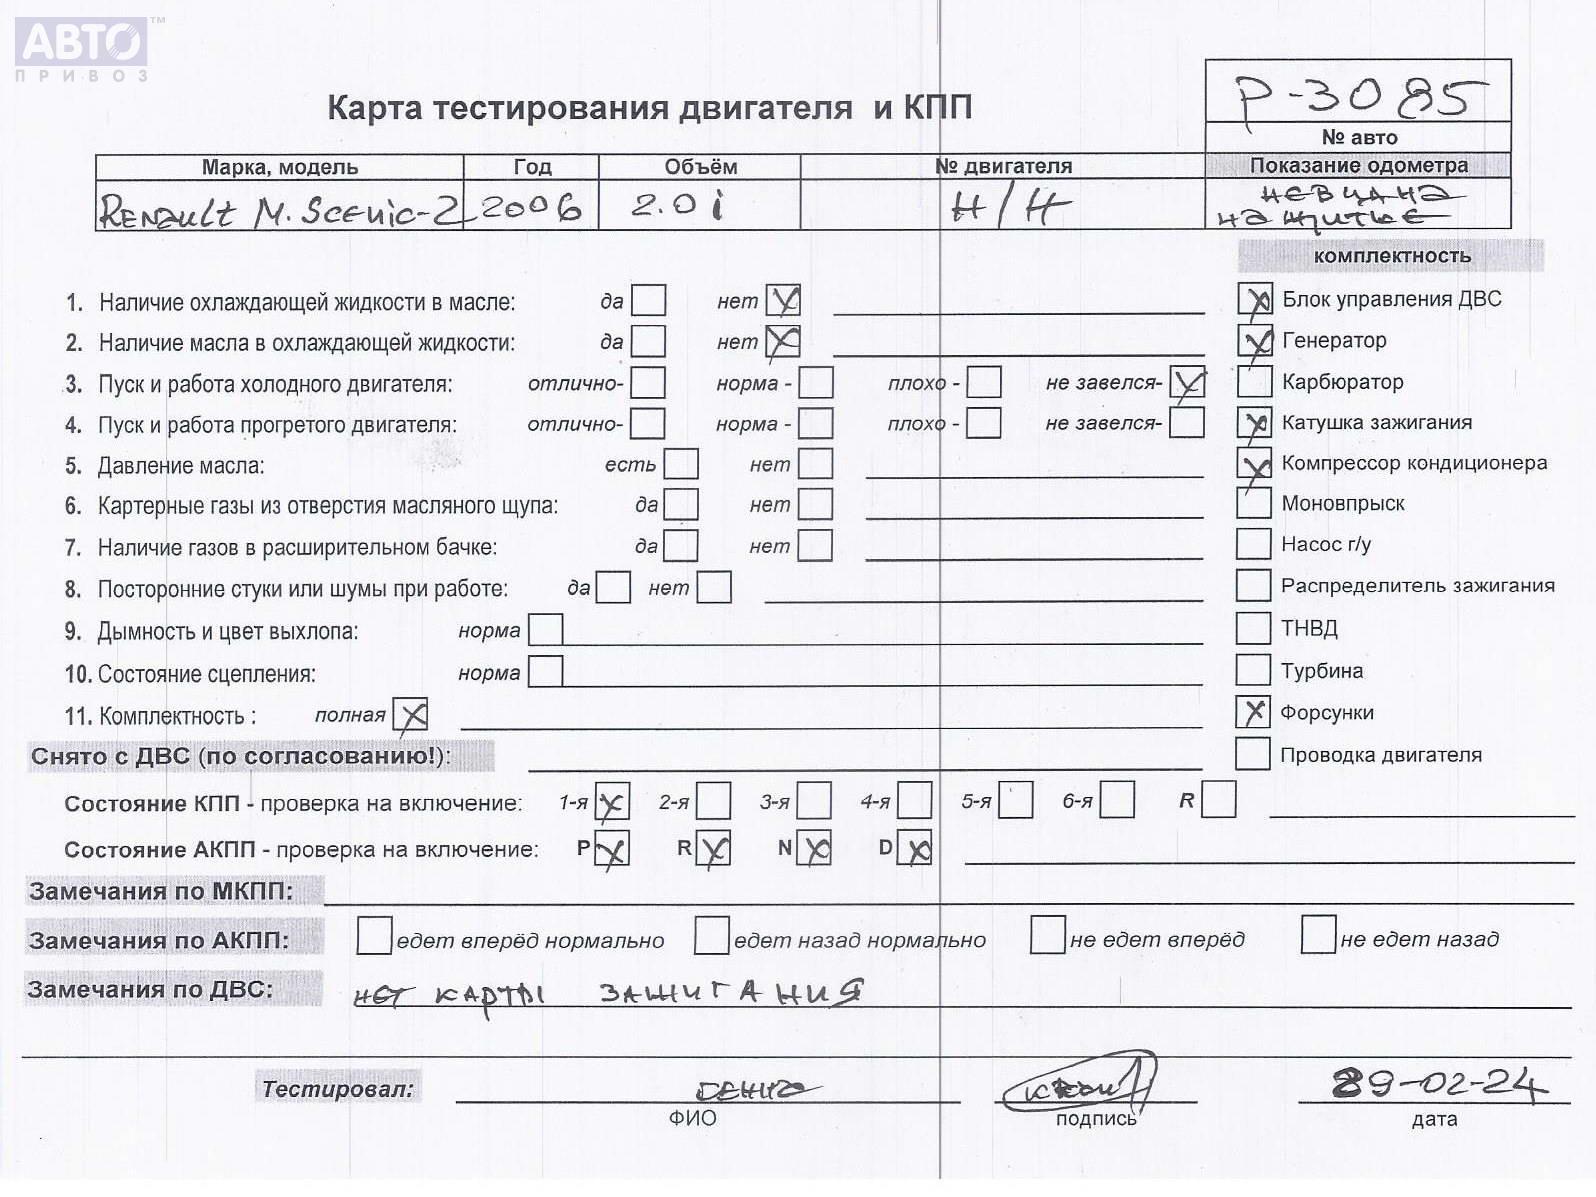 АВТО™
ПРИВОЗ
Карта тестирования двигателя и КПП
P-3085
№ авто
Марка, модель Год Объём № двигателя Показание одометра
Renault M. Scenic-2 2006 2.0i Н/Н
на щитке
комплектность
1. Наличие охлаждающей жидкости в масле: да нет X Блок управления ДВС X
2. Наличие масла в охлаждающей жидкости: да нет X Генератор X
3. Пуск и работа холодного двигателя: отлично- норма - плохо - не завелся- X Карбюратор
4. Пуск и работа прогретого двигателя: отлично- норма - плохо - не завелся- X Катушка зажигания
5. Давление масла: есть нет X Компрессор кондиционера
6. Картерные газы из отверстия масляного щупа: да нет Моновпрыск
7. Наличие газов в расширительном бачке: да нет Насос г/у
8. Посторонние стуки или шумы при работе: да нет Распределитель зажигания
9. Дымность и цвет выхлопа: норма ТНВД
10. Состояние сцепления: норма Турбина
11. Комплектность : полная X X Форсунки
Снято с ДВС (по согласованию!): Проводка двигателя
Состояние КПП - проверка на включение: 1-я X 2-я 3-я 4-я 5-я 6-я R
Состояние АКПП - проверка на включение: P X R X N X D X
Замечания по МКПП:
Замечания по АКПП: едет вперёд нормально едет назад нормально не едет вперёд не едет назад
Замечания по ДВС: нет карты зажигания
Тестировал: 29-02-24
ФИО подпись дата